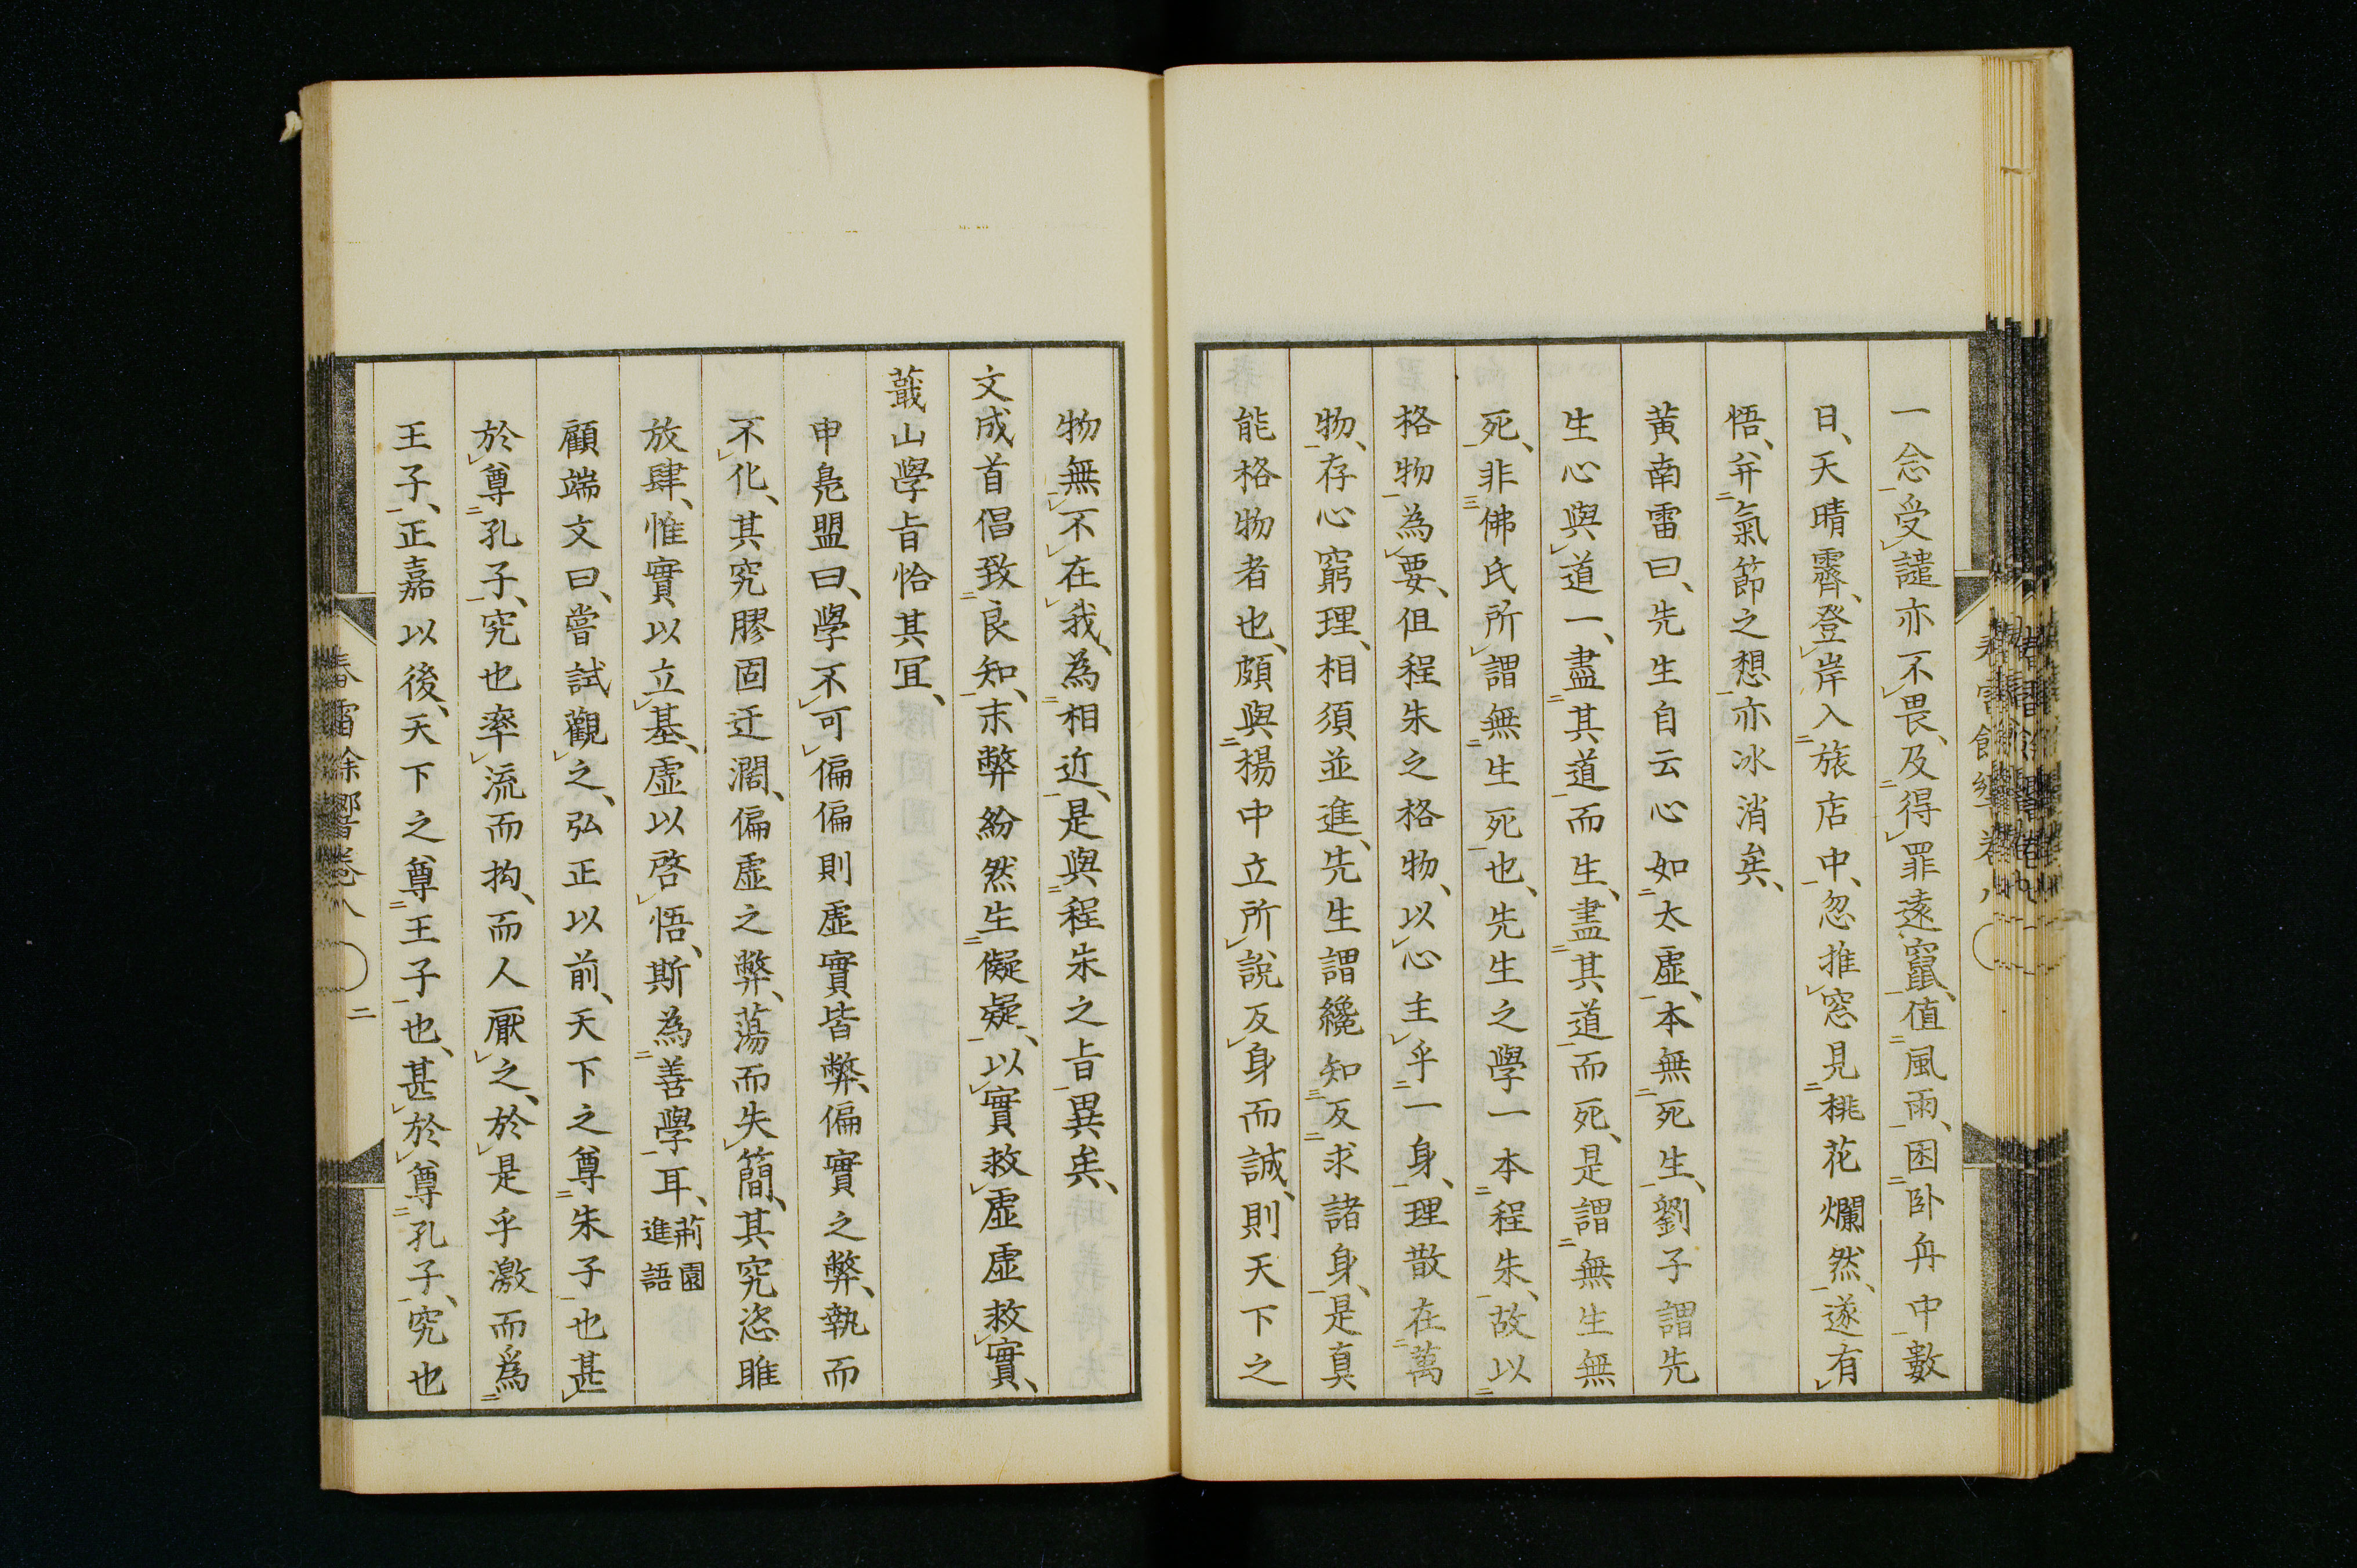 一念受譴亦不畏、及得罪遠竄、值風雨、困卧舟中數
日、天晴霽、登岸入旅店中、忽推窓見桃花爛然、遂有
悟、并氣節之想亦冰消矣、
黃南雷曰、先生自云心如太虛、本無死生、劉子謂先
生心與道一、盡其道而生、盡其道而死、是謂無生無
死、非佛氏所謂無生死也、先生之學一本程朱、故以
格物為要、但程朱之格物、以心主乎一身、理散在萬
物、存心窮理、相須並進、先生謂纔知反求諸身、是真
能格物者也、頗與楊中立所說反身而誠、則天下之
物無不在我、為相近、是與程朱之旨異矣、
文成首倡致良知、末弊紛然生儗疑、以實救虛虛救實、
蕺山學旨恰其冝、
申鳧盟曰、學不可偏偏則虛實皆弊、偏實之弊、執而
不化、其究膠固迂濶、偏虛之弊、蕩而失簡、其究恣雎
放肆、惟實以立基、虛以啓悟、斯為善學耳、荊園進語
顧端文曰、嘗試觀之、弘正以前、天下之尊朱子也甚
於尊孔子、究也率流而拘、而人厭之、於是乎激而爲
王子、正嘉以後、天下之尊王子也、甚於尊孔子、究也
春雷餘響卷八 二